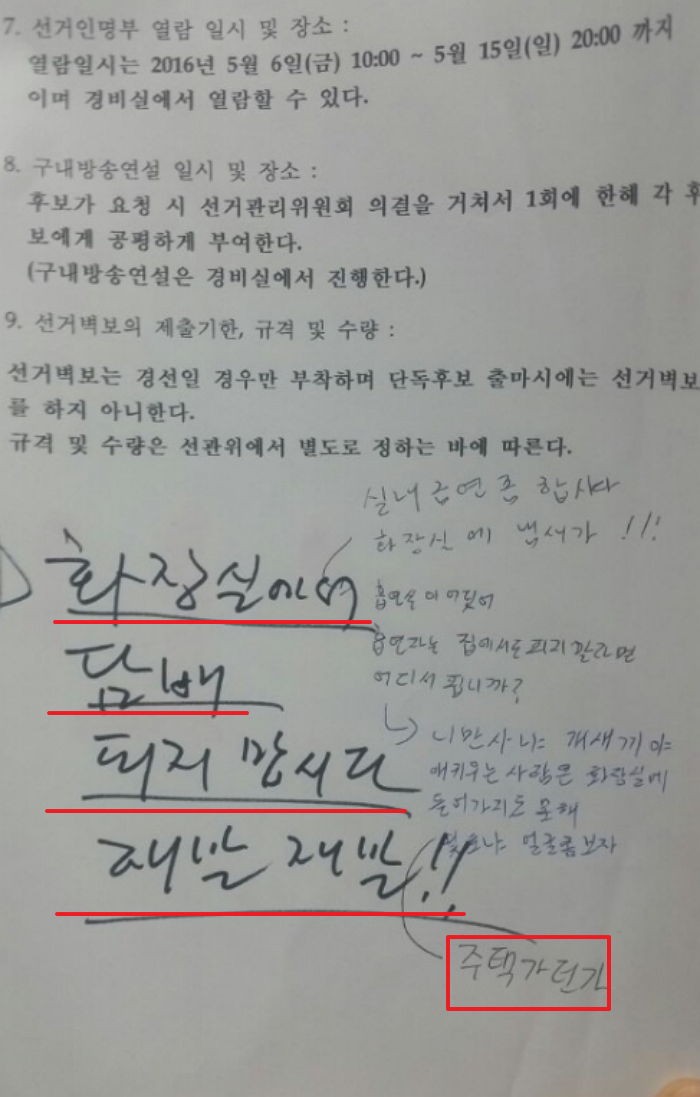 7. 선거인명부 열람 일시 및 장소 :
열람일시는 2016년 5월 6일(금) 10:00 ~ 5월 15일(일) 20:00 까지
이며 경비실에서 열람할 수 있다.
8. 구내방송연설 일시 및 장소 :
후보가 요청 시 선거관리위원회 의결을 거쳐서 1회에 한해 각 후
보에게 공평하게 부여한다.
(구내방송연설은 경비실에서 진행한다.)
9. 선거벽보의 제출기한, 규격 및 수량 :
선거벽보는 경선일 경우만 부착하며 단독후보 출마시에는 선거벽보
를 하지 아니한다.
규격 및 수량은 선관위에서 별도로 정하는 바에 따른다.
실내 금연 좀 합시다
화장실에 냄새가 !!!
화장실에서
담배
피지 맙시다
제발 제발!!
흡연실이 어딨어
흡연자는 집에서도 피지 말라면
어디서 핍니까?
니만 사나 개새끼야
애키우는 사람은 화장실에
들어가지도 못해
얼굴좀보자
주택가던가